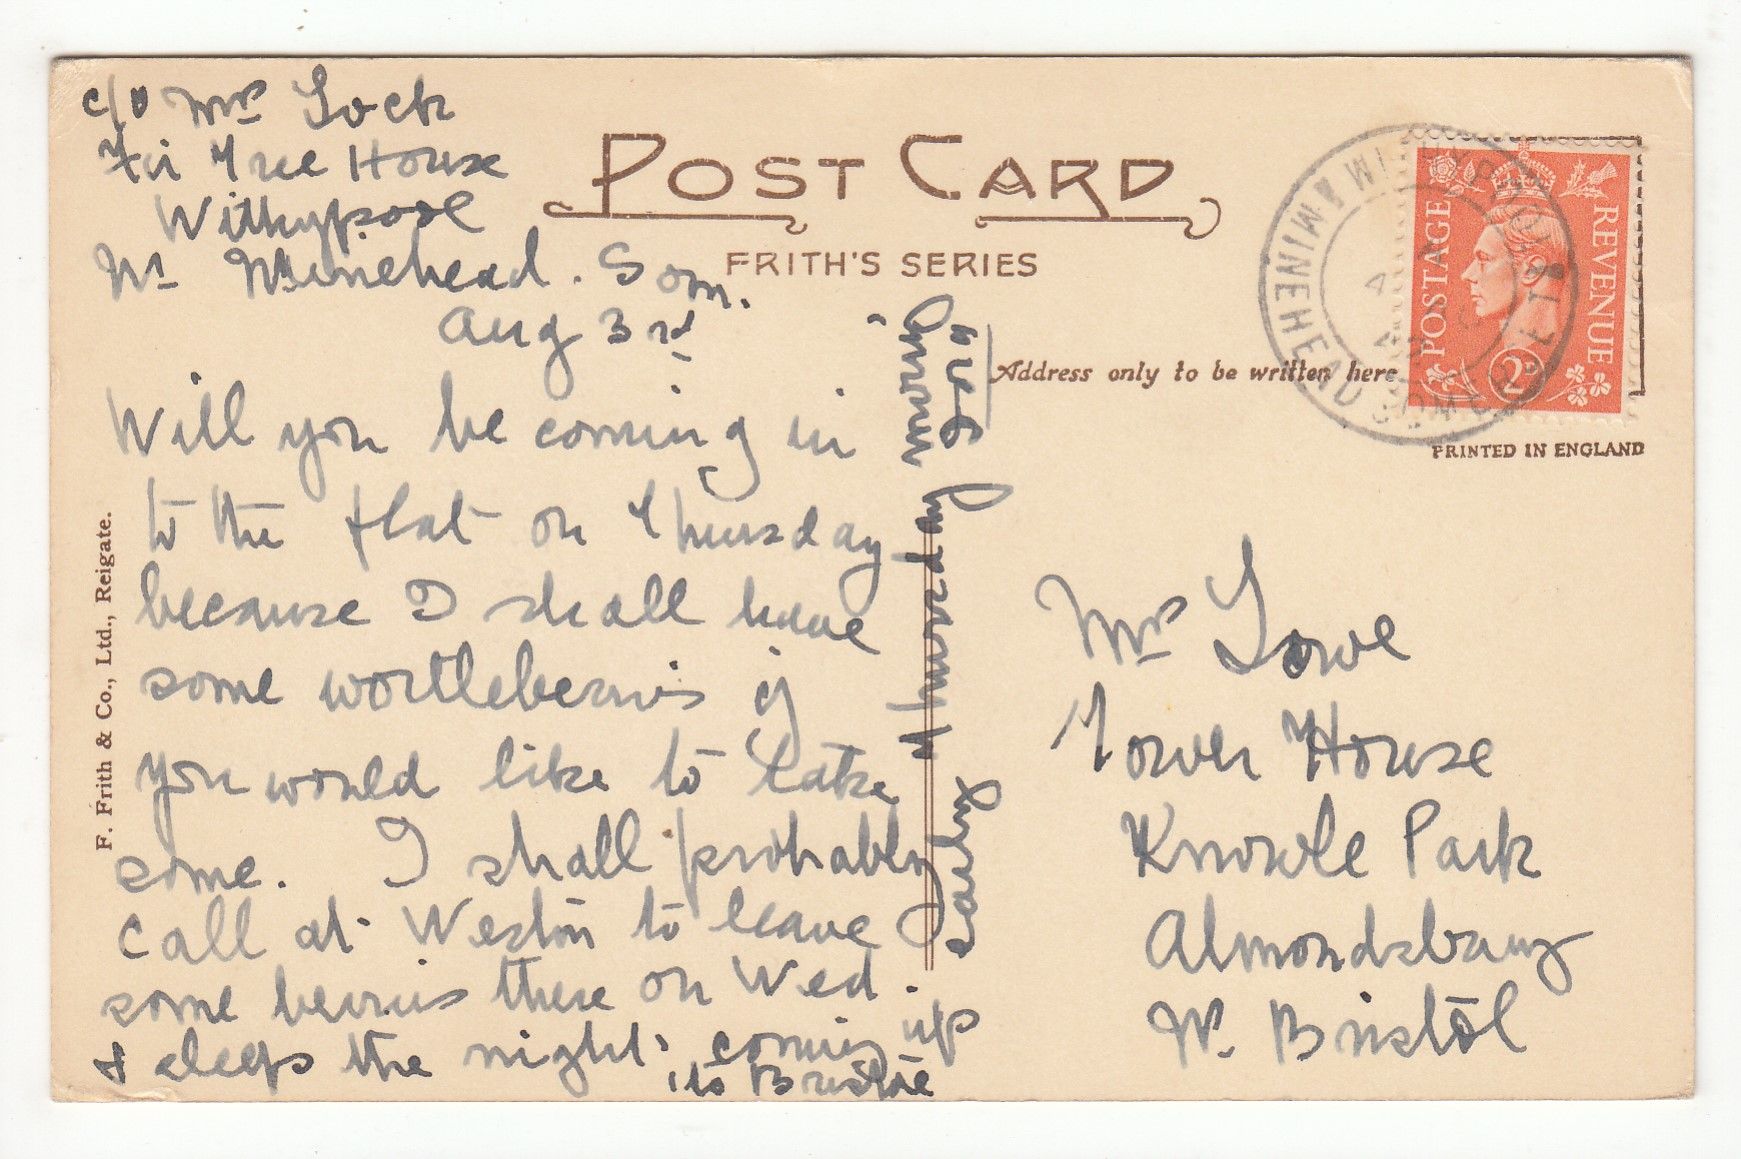 c/o Mrs Lock
Fir Tree House
Withypool
Nr Minehead. Som.
Aug 3rd
Will you be coming in
to the flat on Thursday
because I shall have
some wortleberries if
you would like to take
some. I shall probably
call at Weston to leave
some berries there on Wed.
& sleep the night, coming up
to Bristol
early Thursday morning
POST CARD
FRITH'S SERIES
Address only to be written here
PRINTED IN ENGLAND
POSTAGE
REVENUE
2D
WITHYPOOL
MINEHEAD
Mrs Lowe
Tower House
Knowle Park
Almondsbury
Nr. Bristol
F. Frith & Co., Ltd., Reigate.